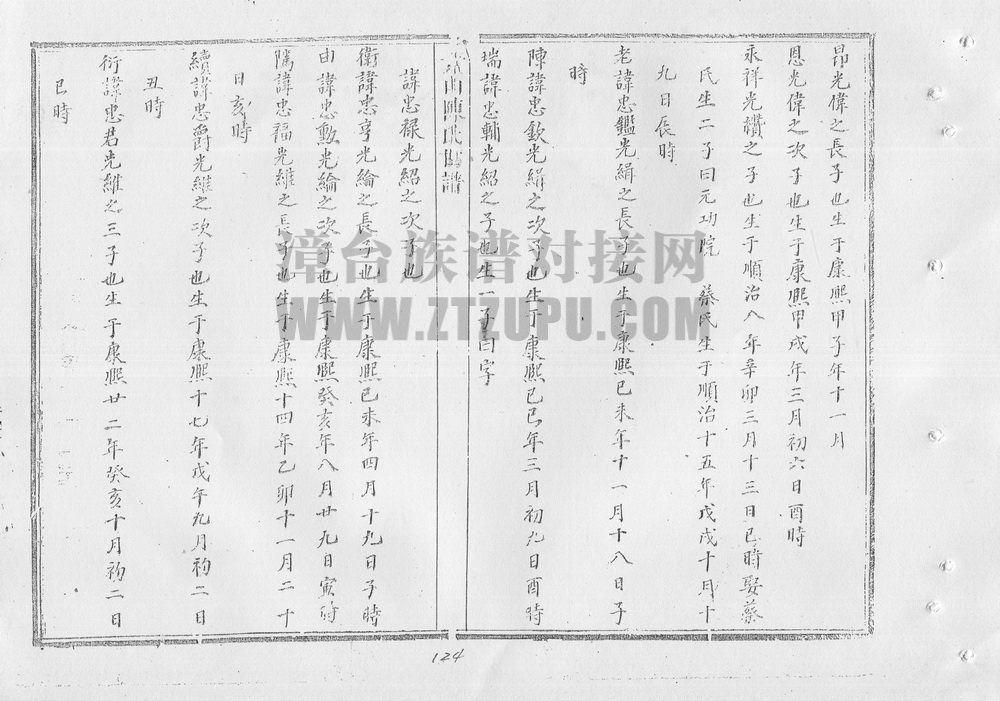 昂光偉之長子也生于康熙甲子年十一月
恩光偉之次子也生于康熙甲戌年三月初六日酉時
永祥光欑之子也生于順治八年辛卯三月十三日巳時娶蔡
氏生二子曰元功院 蔡氏生于順治十五年戊戌十月十
九日辰時
老諱忠鑑光緝之長子也生于康熙己未年十一月十八日子
時
陣諱忠欽光緝之次子也生于康熙己巳年三月初九日酉時
瑞諱忠輔光紹之子也生一子曰字
陳氏 譜
諱忠祿光紹之次子也
衛諱忠亨光綸之長子也生于康熙己未年四月十九日子時
由諱忠勳光綸之次子也生于康熙癸亥年八月廿九日寅時
隲諱忠福光維之長子也生于康熙十四年乙卯十一月二十
日亥時
續諱忠爵光維之次子也生于康熙十七年戊午九月初二日
丑時
衍諱忠君光維之三子也生于康熙廿二年癸亥十月初二日
巳時
124
漳台族谱对接网
WWW.ZTZUPU.COM